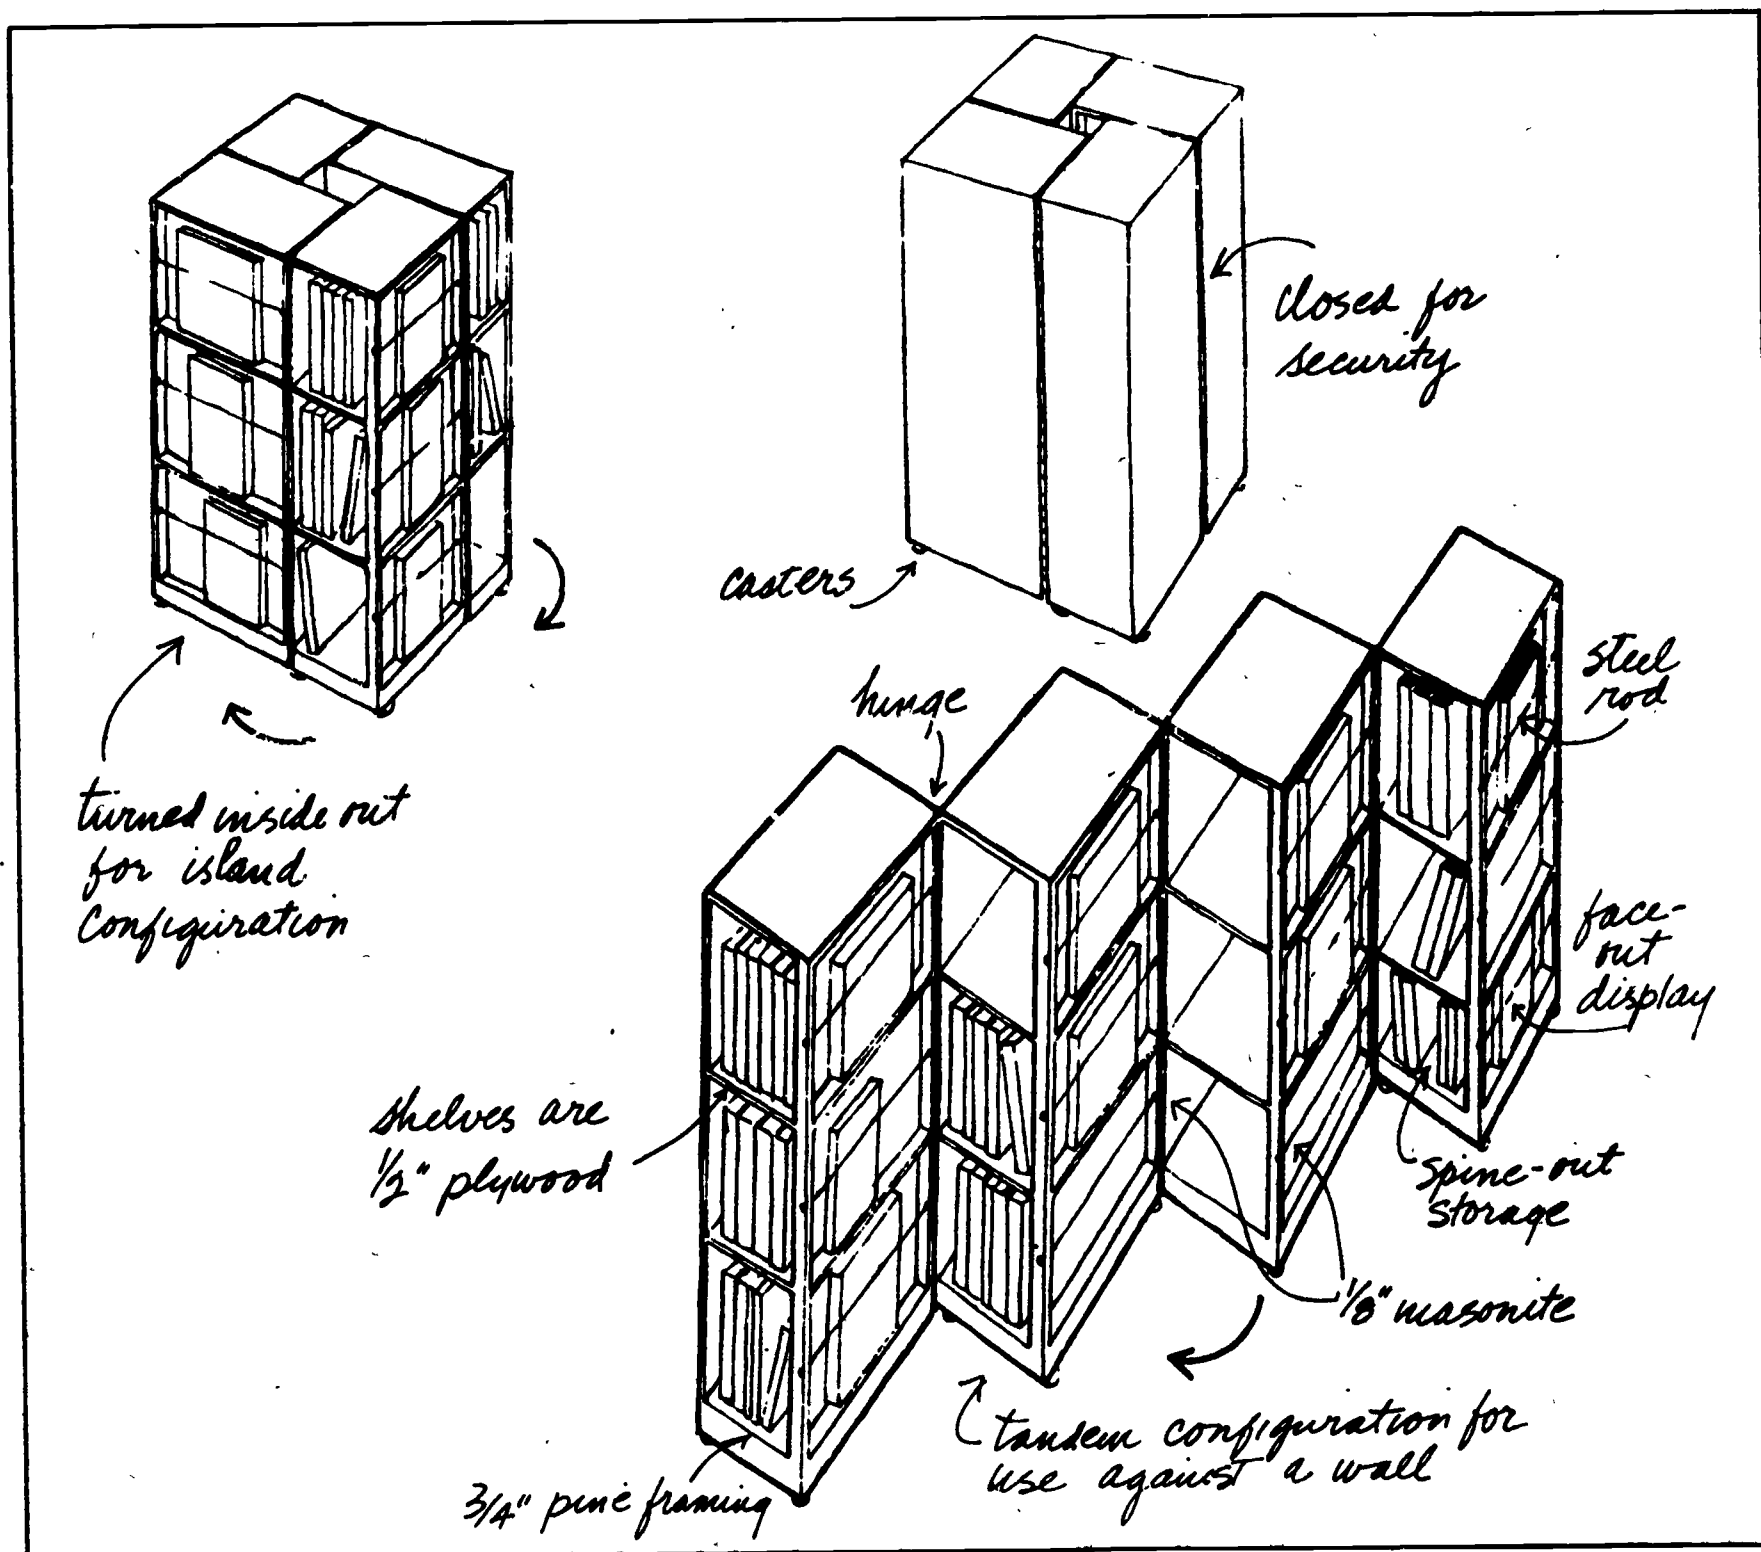 closed for
security
casters
turned inside out
for island
configuration
hinge
steel
rod
face-
out
display
shelves are
1/2" plywood
spine-out
storage
1/8" masonite
tandem configuration for
use against a wall
3/4" pine framing